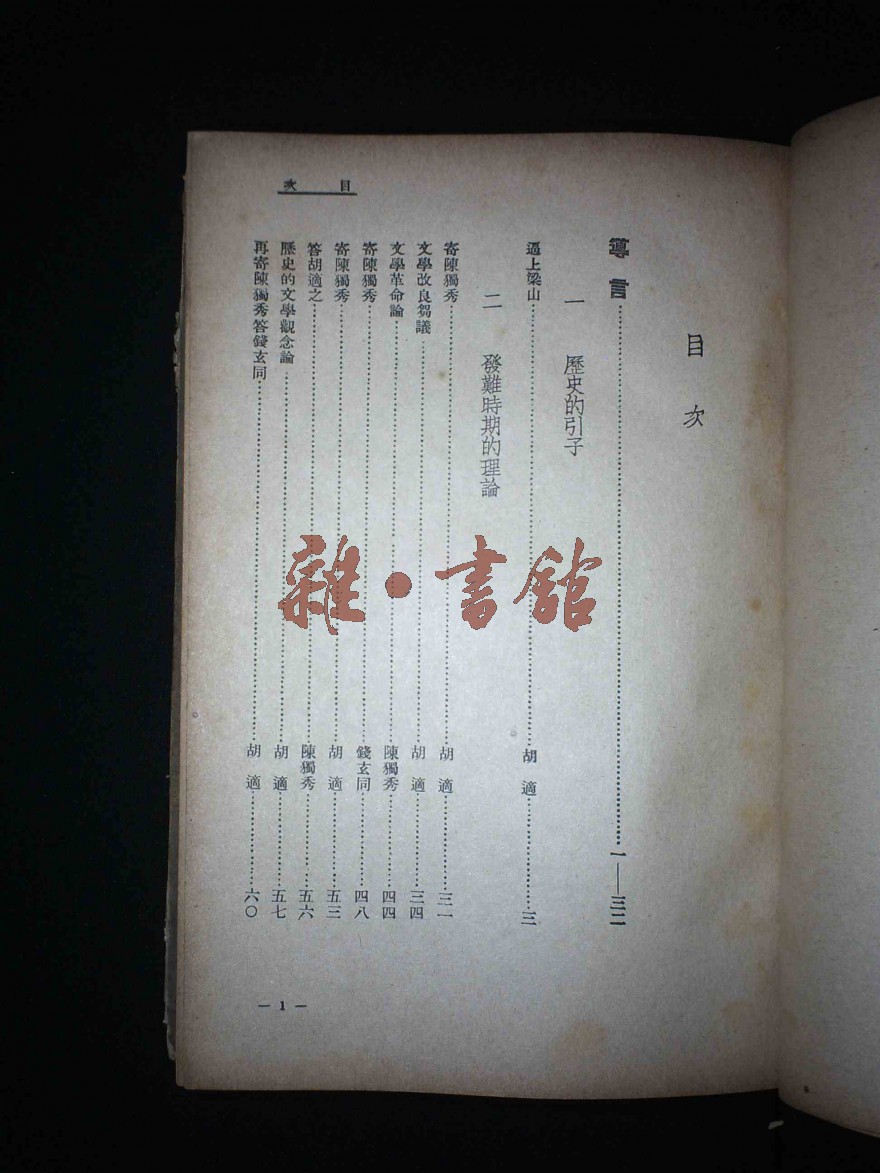 目次
目次
導言……一——三二
一 歷史的引子
逼上梁山……胡適……三
二 發難時期的理論
寄陳獨秀……胡適……三一
文學改良芻議……胡適……三四
文學革命論……陳獨秀……四四
寄陳獨秀……錢玄同……四八
寄陳獨秀……胡適……五三
答胡適之……陳獨秀……五六
歷史的文學觀念論……胡適……五七
再寄陳獨秀答錢玄同……胡適……六〇
— 1 —
雜·書館